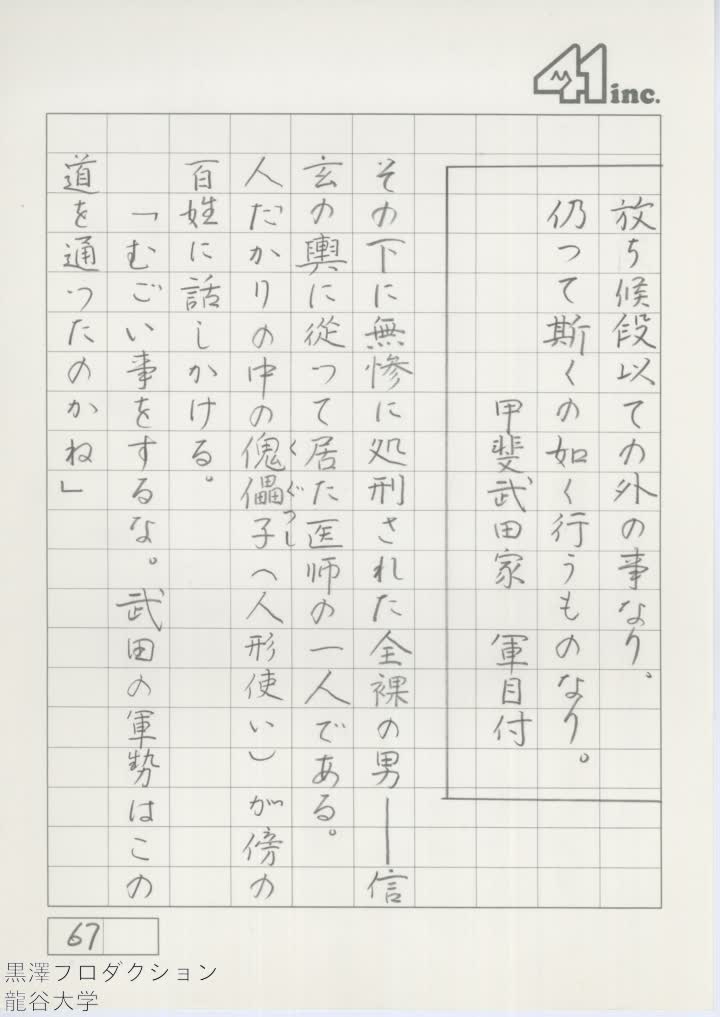 41 inc.
放ち候段以ての外の事なり。
仍つて斯くの如く行うものなり。
甲斐武田家　軍目付
その下に無惨に処刑された全裸の男──信
玄の輿に従つて居た医師の一人である。
人だかりの中の傀儡子（人形使い）が傍の
くぐつし
百姓に話しかける。
「むごい事をするな。武田の軍勢はこの
道を通つたのかね」
67
黒澤フロダクション
龍谷大学